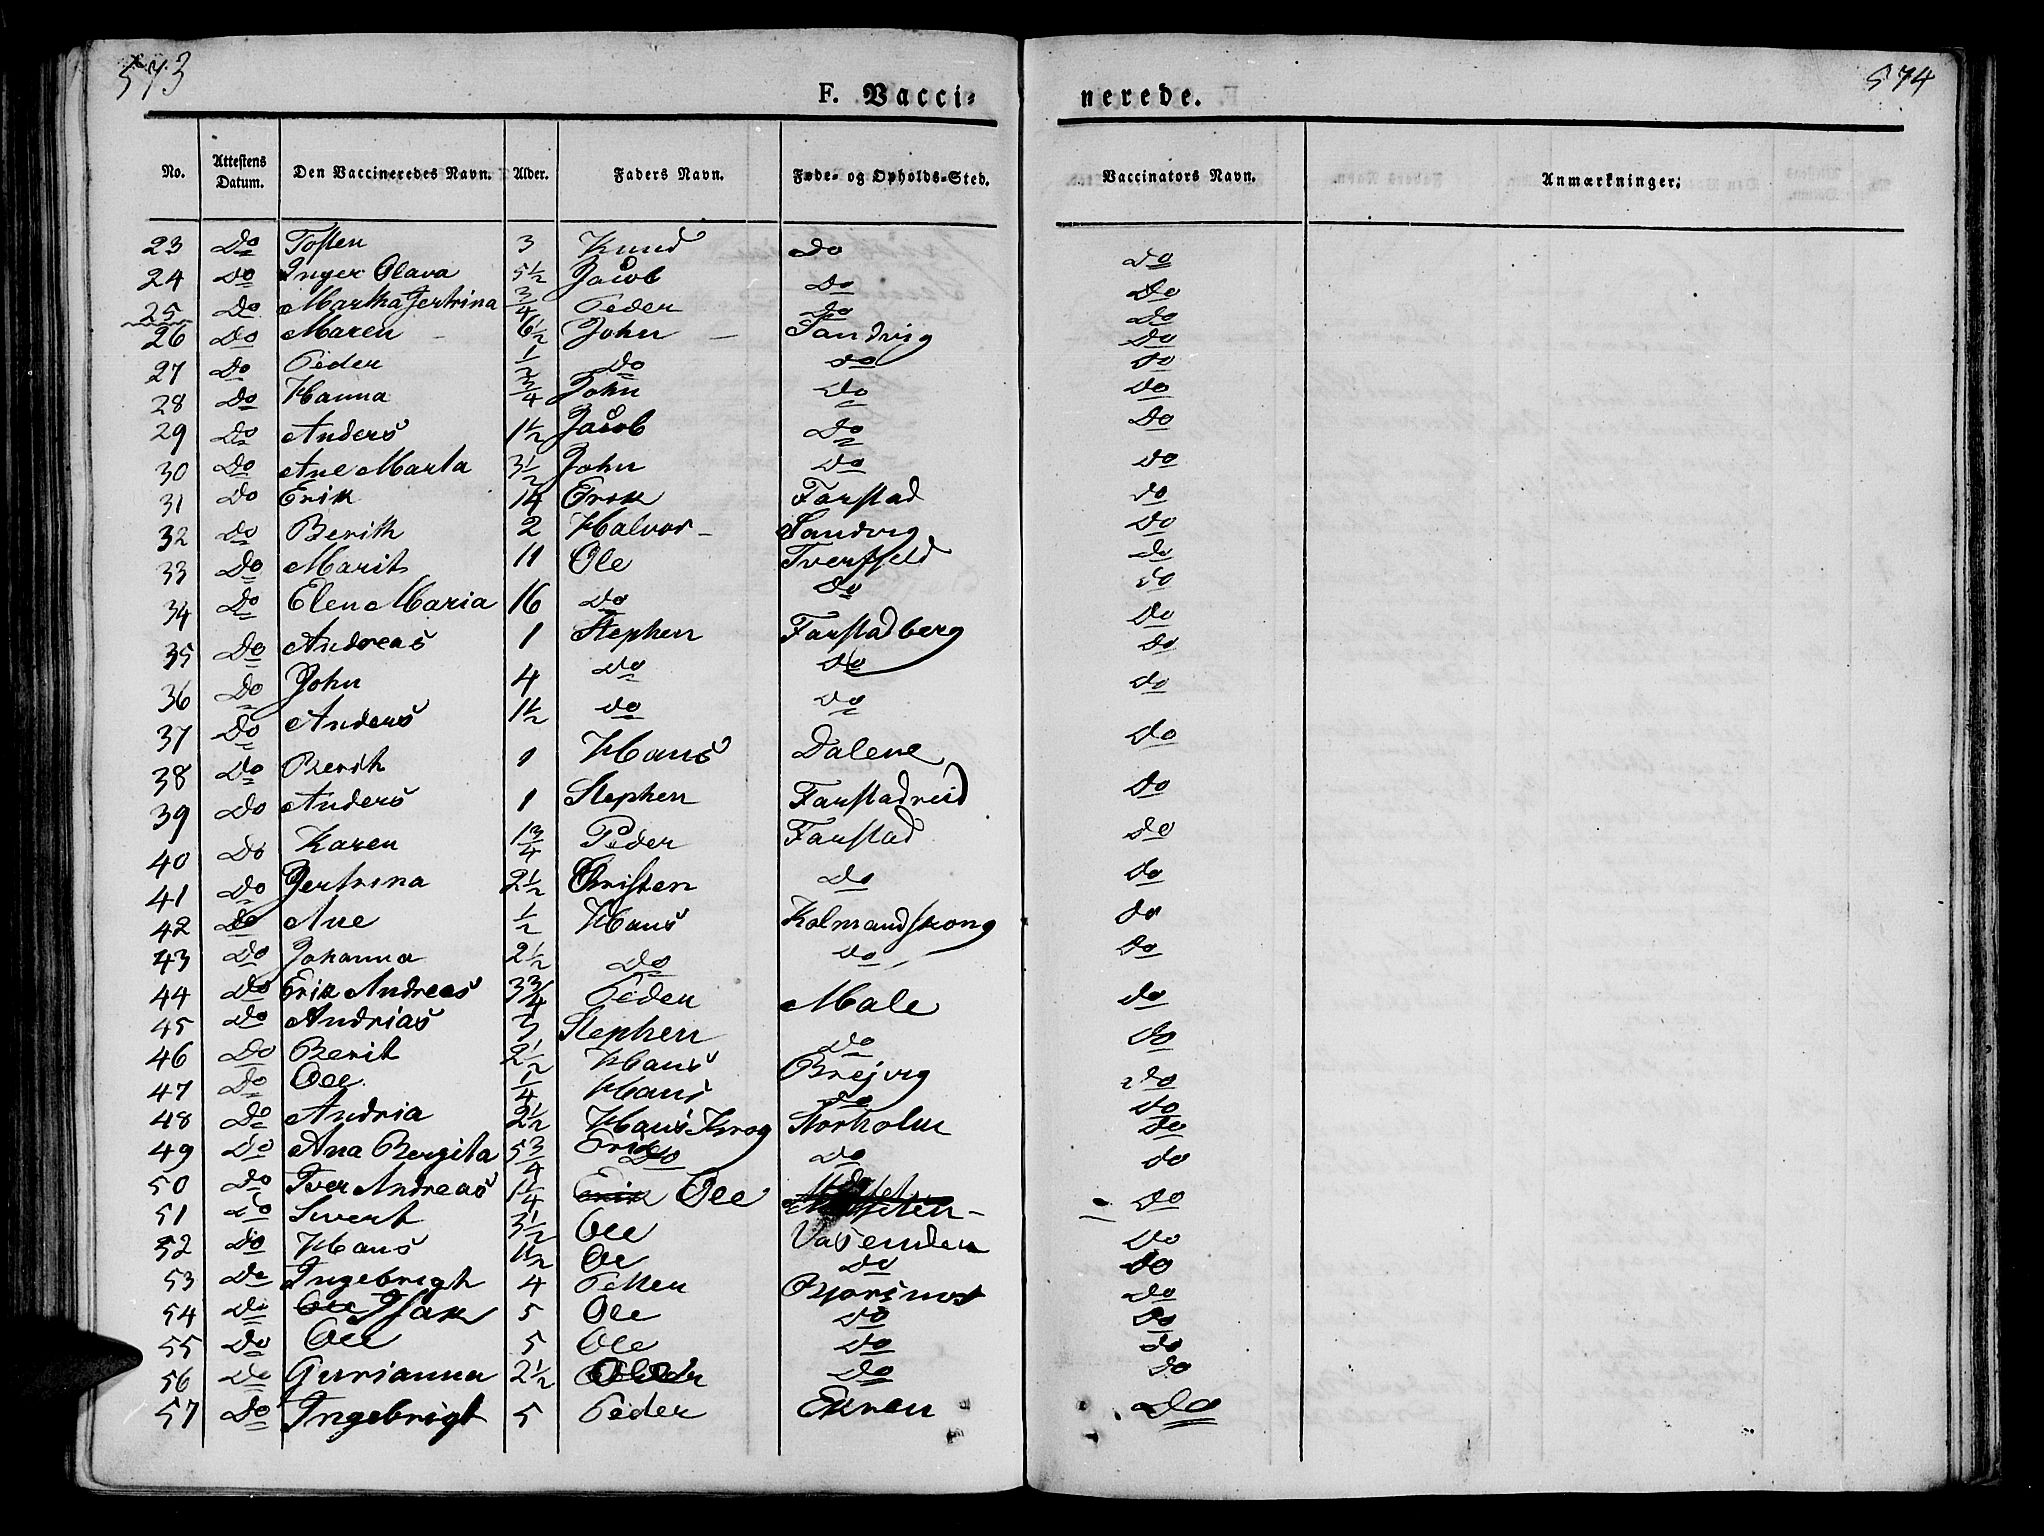 573
574
F. Vacci-
nerede.
No. Attestens Datum. Den Vaccineredes Navn. Alder. Faders Navn. Føde- og Opholds-Sted. Vaccinators Navn. Anmærkninger.
23 Do Tosten 3 Knud Do Do
24 Do Inger Olava 5½ Jacob Do Do
25 Do Martha Jertrina ¾ Peder Do Do
26 Do Maren 6½ John Sandvig Do
27 Do Peder ½ Do Do Do
28 Do Hanna ¾ John Do Do
29 Do Anders 1½ Jacob Do Do
30 Do Ane Marta 3½ John Do Do
31 Do Erik 14 Erik Farstad Do
32 Do Berith 2 Halvor Sandvig Do
33 Do Marit 11 Ole Tverfjeld Do
34 Do Elen Maria 16 Do Do Do
35 Do Andreas 1 Stephen Farstadberg Do
36 Do John 4 Do Do Do
37 Do Anders 1½ Do Do Do
38 Do Berith 1 Hans Dalene Do
39 Do Anders 1 Stephen Farstadreid Do
40 Do Karen 1¾ Peder Farstad Do
41 Do Jertrina 2½ Christen Do Do
42 Do Ane ½ Hans Kolmandskong Do
43 Do Johanna 2½ Do Do Do
44 Do Erik Andreas 3¾ Peder Male Do
45 Do Andrias Stephen Do Do
46 Do Berit 2½ Hans Brejvig Do
47 Do Ole ¼ Hans Do Do
48 Do Andria 2½ Hans Krog Storholm Do
49 Do Ana Bergita 5¾ Erik Do Do
50 Do Iver Andreas 1¼ Erik Ole Do
51 Do Sivert 3½ Ole Vasenden Do
52 Do Hans 1½ Ole Do Do
53 Do Ingebrigt 4 Petter Do
54 Do Ole Isak 5 Ole Do Do
55 Do Ole 5 Ole Do Do
56 Do Gurianna 2½ Do Do
57 Do Ingebrigt 5 Peder Ekren Do